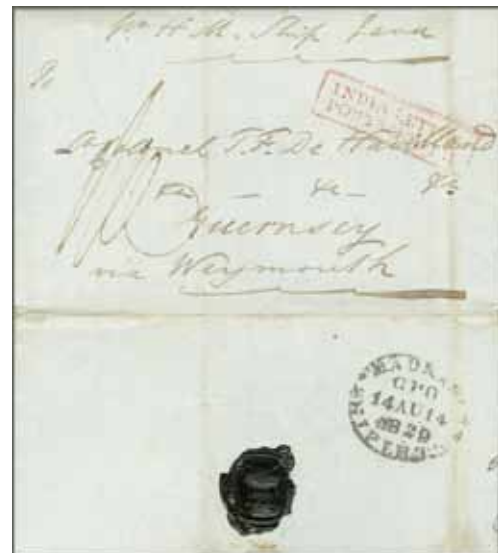 Pr H. M. Ship Java
To
INDIA LET
PO
Colonel T. F. De Havilland
&c &c &c
Guernsey
via Weymouth
MADRAS
GPO
14 AU 14
1829
SHIP LR